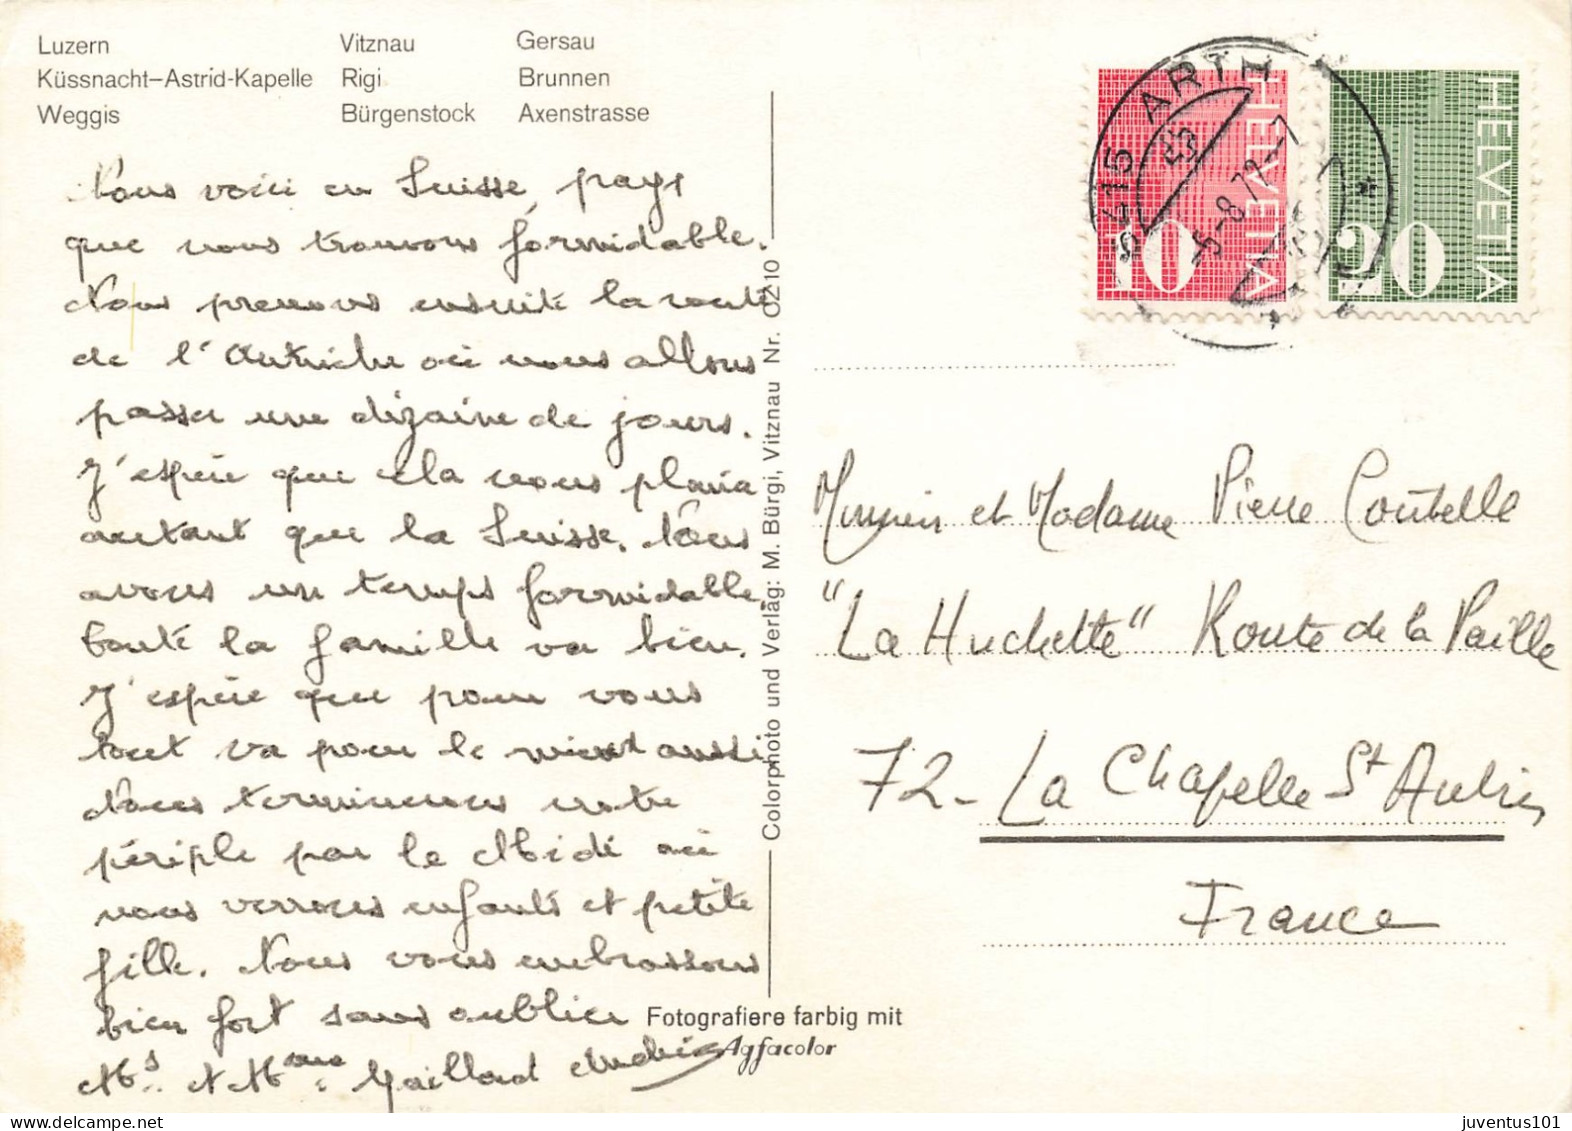 Luzern Vitznau Gersau
Küssnacht–Astrid-Kapelle Rigi Brunnen
Weggis Bürgenstock Axenstrasse
Nous voici en Suisse, pays
que nous trouvons formidable.
Nous prenons ensuite la route
de l'Autriche où nous allons
passer une dizaine de jours.
J'espère que cela nous plaira
autant que la Suisse. Nous
avons un temps formidable,
toute la famille va bien.
J'espère que pour vous
tout va pour le mieux aussi.
Nous terminerons notre
périple par le Midi où
nous verrons enfants et petite
fille. Nous vous embrassons
bien fort sans oublier
Gaillard
Colorphoto und Verlag: M. Bürgi, Vitznau Nr. 0210
Fotografiere farbig mit
Agfacolor
HELVETIA 10
HELVETIA 20
6415 ARTH
-8.72--7
Monsieur et Madame Pierre Coutelle
"La Huchette" Route de la Paille
72 - La Chapelle St Aubin
France
juventus101